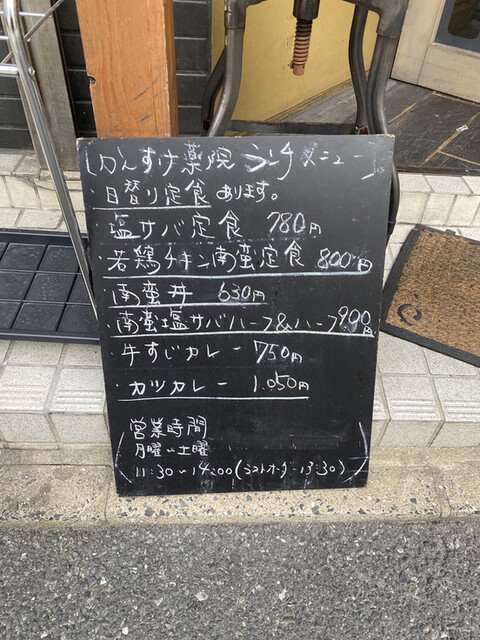 かんすけ薬院 ランチメニュー
・日替り定食 あります。
・塩サバ定食 780円
・若鶏チキン南蛮定食 800円
・南蛮丼 630円
・南蛮塩サバハーフ&ハーフ900円
・牛すじカレー 750円
・カツカレー 1.050円
営業時間
月曜〜土曜
11:30〜14:00(ラストオーダー13:30)